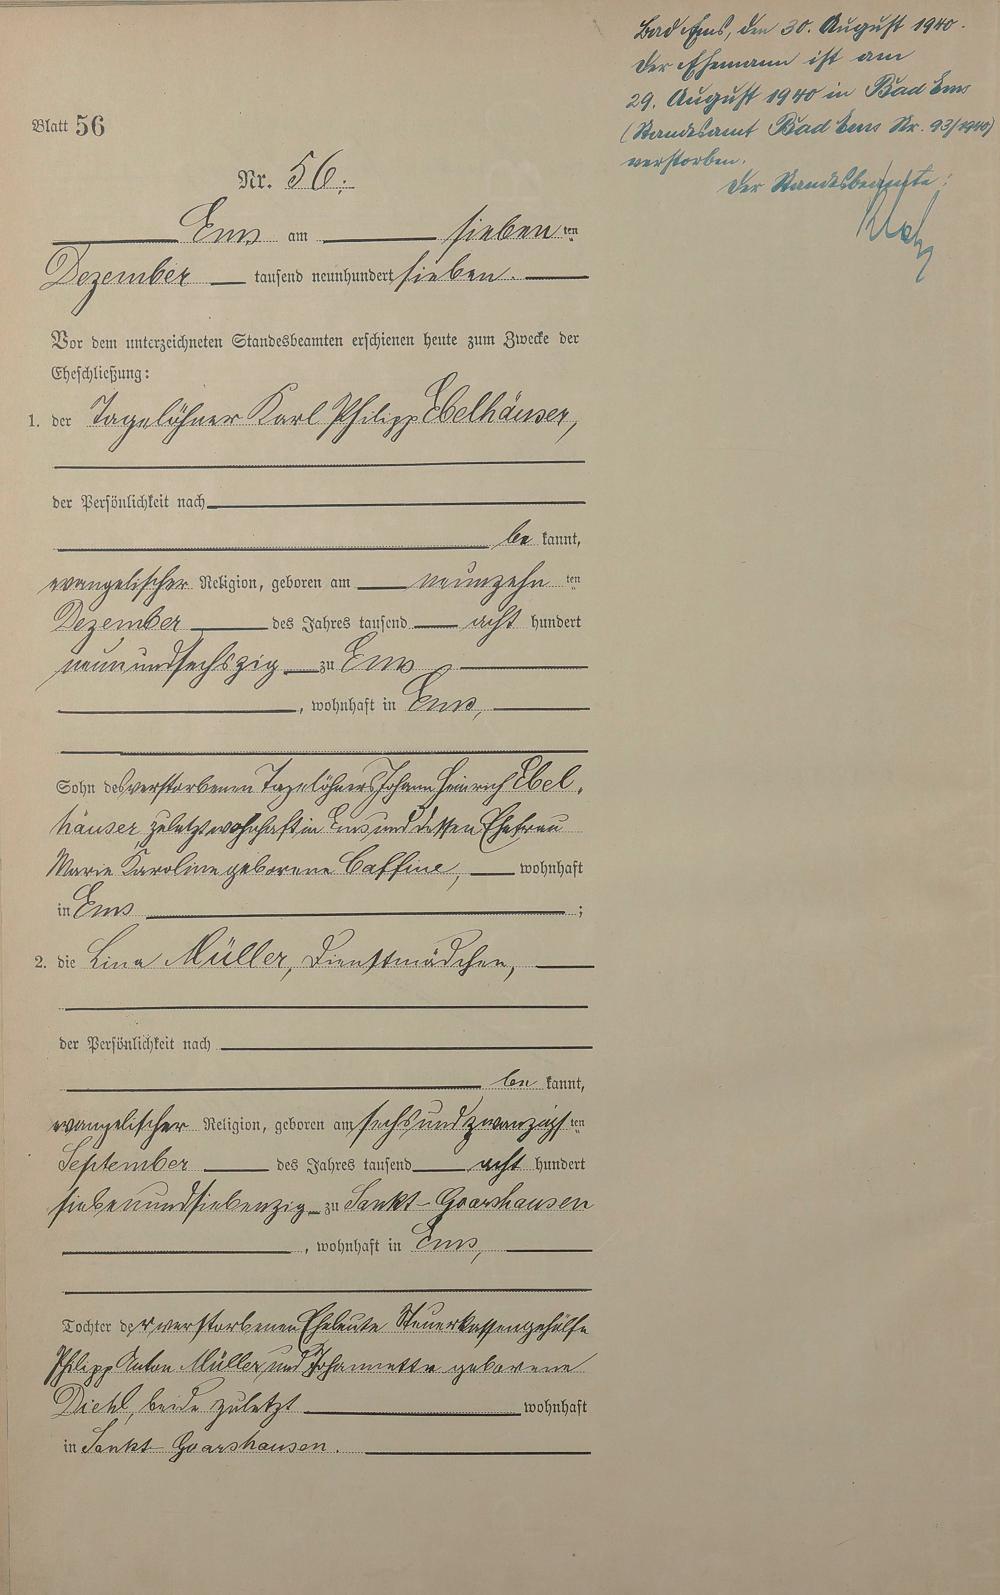 Bad Ems, den 30. August 1940.
Der Ehemann ist am
29. August 1940 in Bad Ems
(Standesamt Bad Ems Nr. 93/1940)
verstorben.
Der Standesbeamte:
Blatt 56
Nr. 56.
Ems am siebenten
Dezember tausend neunhundert sieben.
Vor dem unterzeichneten Standesbeamten erschienen heute zum Zwecke der
Eheschließung:
1. der Tagelöhner Karl Philipp Ebelhäuser,
der Persönlichkeit nach
bekannt,
evangelischer Religion, geboren am neunzehnten
Dezember des Jahres tausend acht hundert
neunundsechszig zu Ems
, wohnhaft in Ems,
Sohn des verstorbenen Tagelöhners Johann Heinrich Ebel-
häuser, zuletzt wohnhaft in Ems und dessen Ehefrau
Marie Karoline geborene Caffine, wohnhaft
in Ems ;
2. die Lina Müller, Dienstmädchen,
der Persönlichkeit nach
bekannt,
evangelischer Religion, geboren am sechsundzwanzigsten
September des Jahres tausend acht hundert
siebenundsiebenzig zu Sankt-Goarshausen
, wohnhaft in Ems,
Tochter der verstorbenen Eheleute Steuerkassengehülfe
Philipp Anton Müller und Johannette geborene
Diehl, beide zuletzt wohnhaft
in Sankt-Goarshausen.